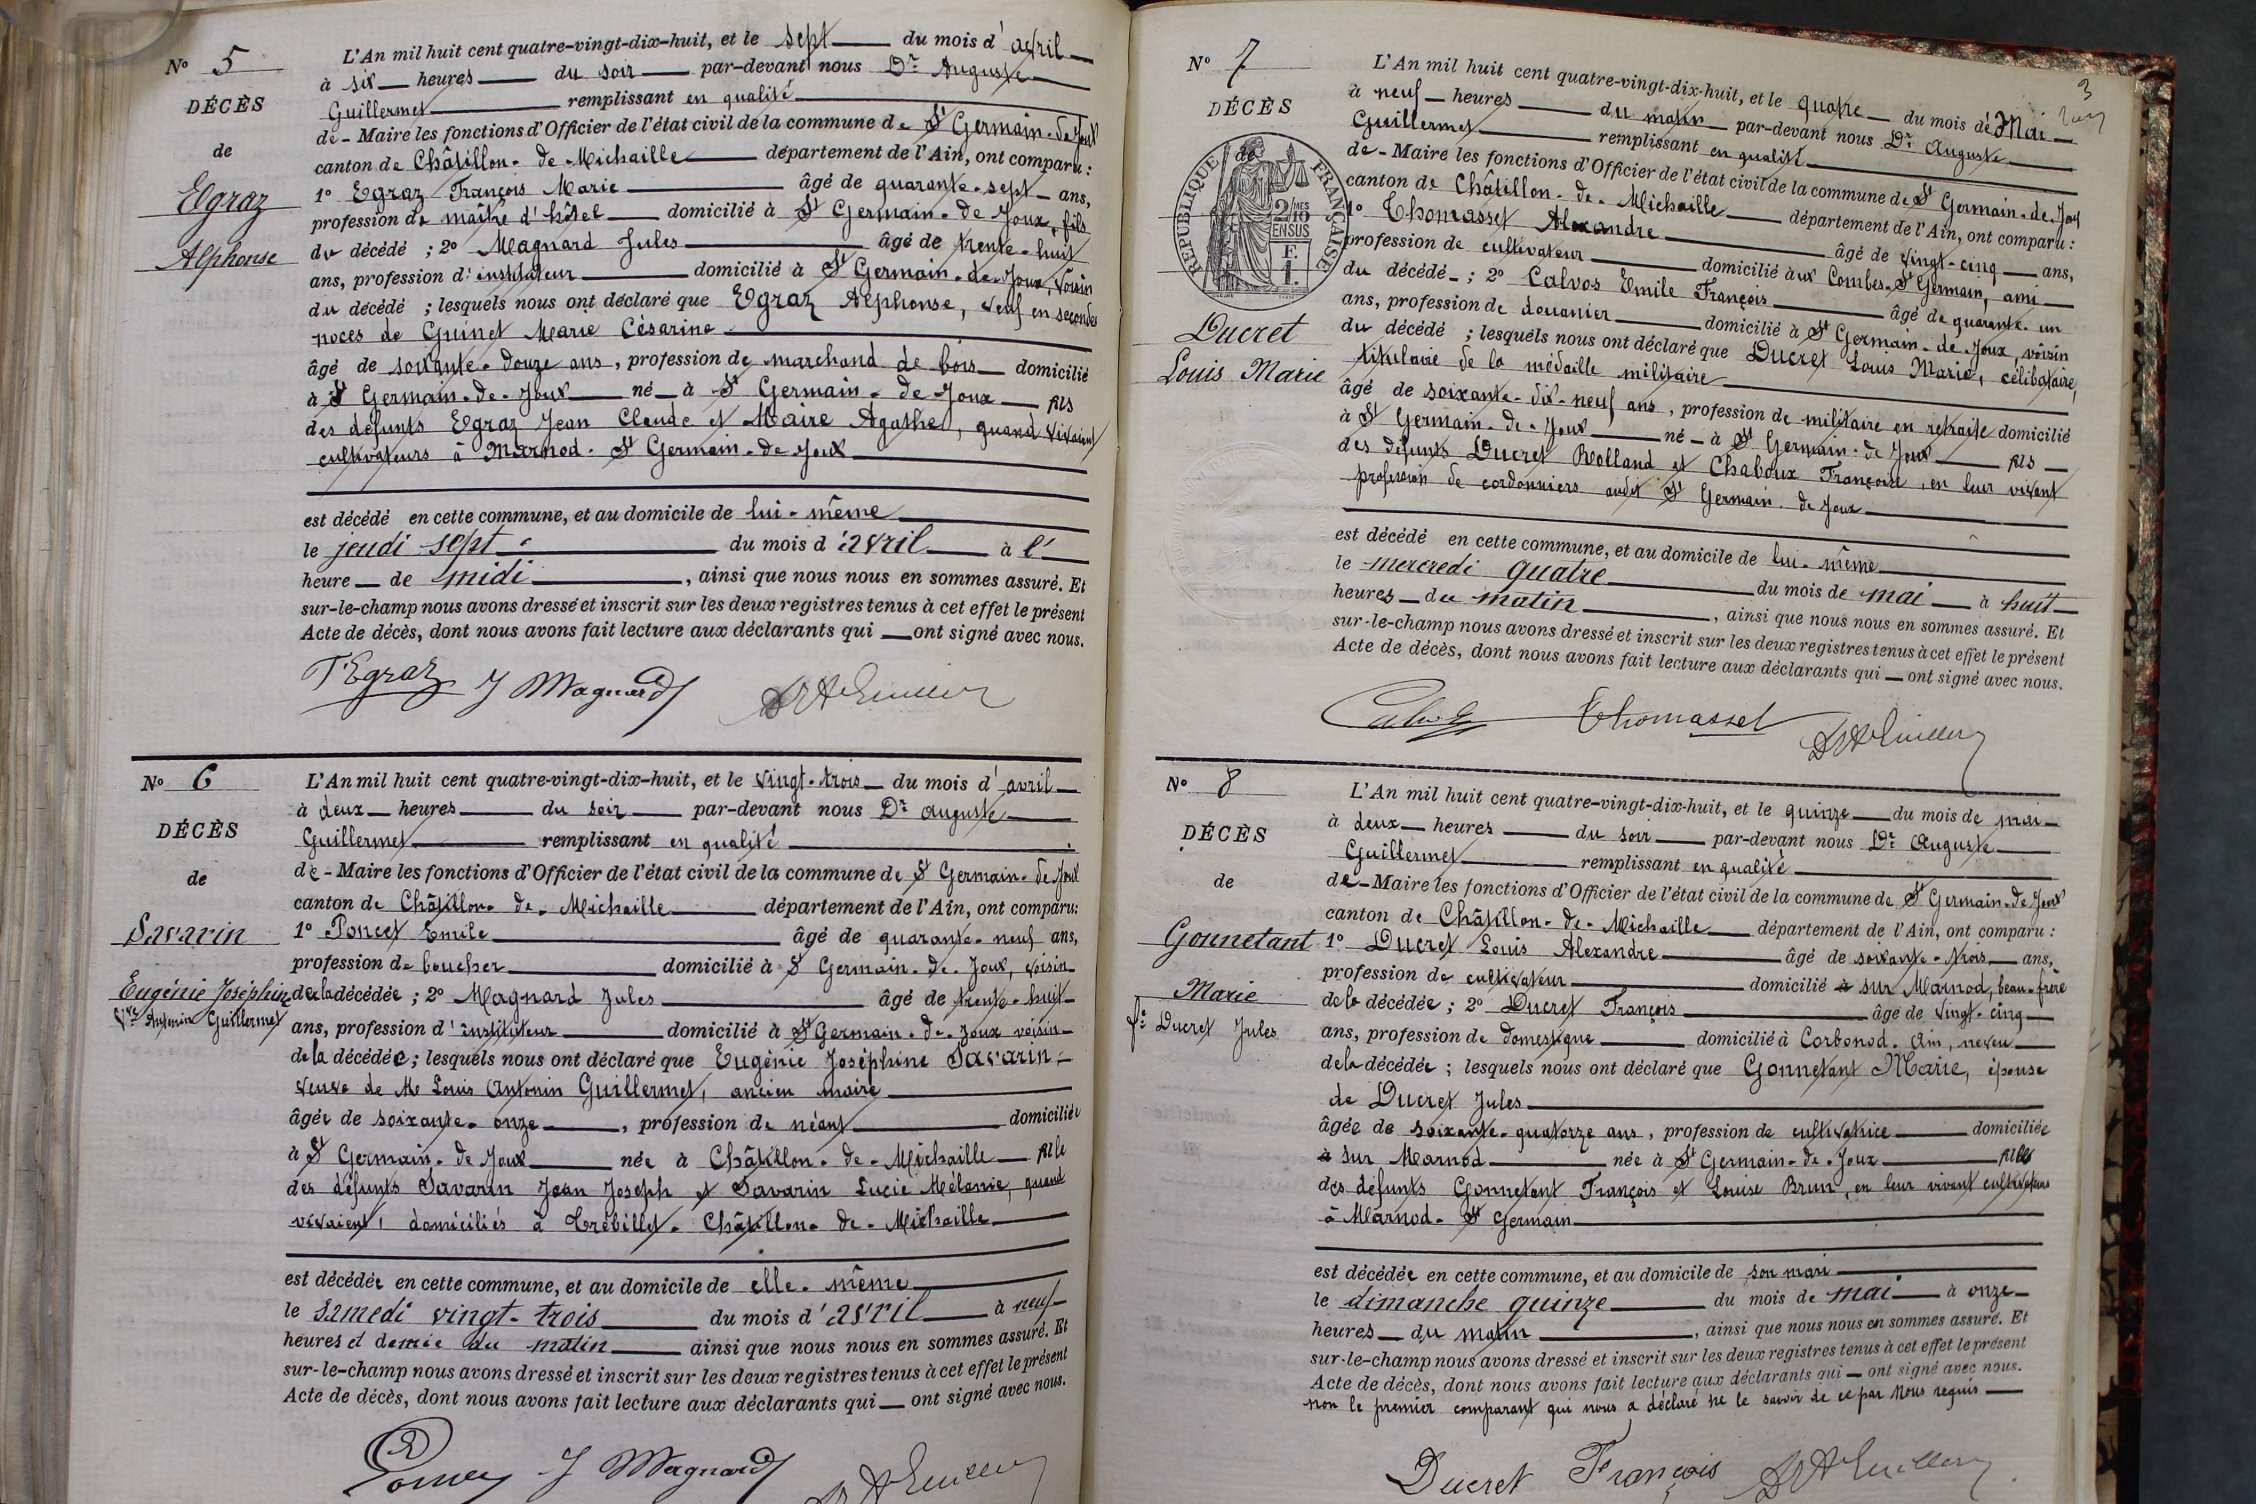 N° 5
DÉCÈS
de
Egraz
Alphonse
L'An mil huit cent quatre-vingt-dix-huit, et le sept du mois d'avril
à six heures du soir par-devant nous Dr Auguste
Guillermet remplissant en qualité
de - Maire les fonctions d'Officier de l'état civil de la commune de St Germain-de-Joux
canton de Châtillon-de-Michaille département de l'Ain, ont comparu :
1° Egraz François Marie âgé de quarante-sept ans,
profession de maître d'hôtel domicilié à St Germain-de-Joux, fils
du décédé ; 2° Magnard Jules âgé de trente-huit
ans, profession d'instituteur domicilié à St Germain-de-Joux, voisin
du décédé ; lesquels nous ont déclaré que Egraz Alphonse, veuf en secondes
noces de Guinet Marie Césarine
âgé de soixante-douze ans, profession de marchand de bois domicilié
à St Germain-de-Joux né à St Germain-de Joux fils
des défunts Egraz Jean Claude et Maire Agathe, quand vivaient
cultivateurs à Marnod. St Germain-de-Joux
est décédé en cette commune, et au domicile de lui-même
le jeudi sept du mois d'avril à l'
heure de midi, ainsi que nous nous en sommes assuré. Et
sur-le-champ nous avons dressé et inscrit sur les deux registres tenus à cet effet le présent
Acte de décès, dont nous avons fait lecture aux déclarants qui ont signé avec nous.
F Egraz J Magnard Dr A Guillermet
N° 6
DÉCÈS
de
Savarin
Eugénie Joséphine
Vve Antonin Guillermet
L'An mil huit cent quatre-vingt-dix-huit, et le vingt-trois du mois d'avril
à deux heures du soir par-devant nous Dr Auguste
Guillermet remplissant en qualité
de - Maire les fonctions d'Officier de l'état civil de la commune de St Germain-de Joux
canton de Châtillon-de-Michaille département de l'Ain, ont comparu:
1° Poncet Emile âgé de quarante-neuf ans,
profession de boucher domicilié à St Germain-de-Joux, voisin
de la décédée ; 2° Magnard Jules âgé de trente-huit
ans, profession d'instituteur domicilié à St Germain-de-Joux voisin
de la décédée ; lesquels nous ont déclaré que Eugénie Joséphine Savarin
veuve de Me Louis Antonin Guillermet, ancien maire
âgée de soixante-onze, profession de néant domiciliée
à St Germain-de Joux née à Châtillon-de-Michaille fille
des défunts Savarin Jean Joseph et Savarin Lucie Mélanie, quand
vivaient, domiciliés à Trébillet. Châtillon-de-Michaille
est décédée en cette commune, et au domicile de elle-même
le samedi vingt-trois du mois d'avril à neuf
heures et demie du matin ainsi que nous nous en sommes assuré. Et
sur-le-champ nous avons dressé et inscrit sur les deux registres tenus à cet effet le présent
Acte de décès, dont nous avons fait lecture aux déclarants qui ont signé avec nous.
Poncet J Magnard Dr A Guillermet
3
N° 7
DÉCÈS
de
RÉPUBLIQUE FRANÇAISE
2/10 MES
EN SUS
F.
1.
Ducret
Louis Marie
L'An mil huit cent quatre-vingt-dix-huit, et le quatre du mois de Mai
à neuf heures du matin par-devant nous Dr Auguste
Guillermet remplissant en qualité
de - Maire les fonctions d'Officier de l'état civil de la commune de St Germain-de-Joux
canton de Châtillon-de-Michaille département de l'Ain, ont comparu :
1° Thomasset Alexandre âgé de vingt-cinq ans,
profession de cultivateur domicilié aux Combes-St Germain, ami
du décédé ; 2° Calvos Emile François âgé de quarante-un
ans, profession de douanier domicilié à St Germain-de-Joux, voisin
du décédé ; lesquels nous ont déclaré que Ducret Louis Marie, célibataire,
titulaire de la médaille militaire
âgé de soixante-dix-neuf ans, profession de militaire en retraite domicilié
à St Germain-de-Joux né à St Germain-de Joux fils
des défunts Ducret Rolland et Chaboux Françoise, en leur vivant
profession de cordonniers audit St Germain-de Joux
est décédé en cette commune, et au domicile de lui-même
le mercredi quatre du mois de mai à huit
heures du matin, ainsi que nous nous en sommes assuré. Et
sur-le-champ nous avons dressé et inscrit sur les deux registres tenus à cet effet le présent
Acte de décès, dont nous avons fait lecture aux déclarants qui ont signé avec nous.
Calvos Thomasset Dr A Guillermet
N° 8
DÉCÈS
de
Gonnetant
Marie
fe Ducret Jules
L'An mil huit cent quatre-vingt-dix-huit, et le quinze du mois de mai
à deux heures du soir par-devant nous Dr Auguste
Guillermet remplissant en qualité
de - Maire les fonctions d'Officier de l'état civil de la commune de St Germain-de Joux
canton de Châtillon-de-Michaille département de l'Ain, ont comparu :
1° Ducret Louis Alexandre âgé de soixante-trois ans,
profession de cultivateur domicilié à sur Marnod, beau-frère
de la décédée ; 2° Ducret François âgé de vingt-cinq
ans, profession de domestique domicilié à Corbonod. Ain, neveu
de la décédée ; lesquels nous ont déclaré que Gonnetant Marie, épouse
de Ducret Jules
âgée de soixante-quatorze ans, profession de cultivatrice domiciliée
à sur Marnod née à St Germain-de-Joux fille
des défunts Gonnetant François et Louise Brun, en leur vivant cultivateurs
à Marnod-St Germain
est décédée en cette commune, et au domicile de son mari
le dimanche quinze du mois de mai à onze
heures du matin, ainsi que nous nous en sommes assuré. Et
sur-le-champ nous avons dressé et inscrit sur les deux registres tenus à cet effet le présent
Acte de décès, dont nous avons fait lecture aux déclarants qui ont signé avec nous.
non le premier comparant qui nous a déclaré ne le savoir de ce par nous requis
Ducret François Dr A Guillermet